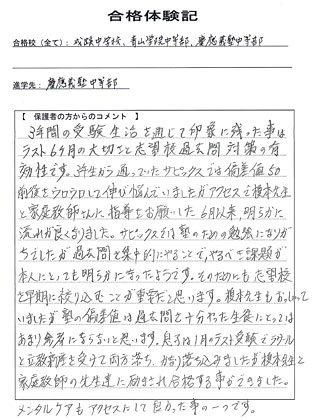 合格体験記
合格校（全て）：成蹊中学校、青山学院中等部、慶應義塾中等部
進学先：慶應義塾中等部
【 保護者の方からのコメント 】
3年間の受験生活を通じて印象に残った事は
ラスト6ヶ月の大切さと志望校過去問対策の有
効性です。3年生から通っていたサピックスでは偏差値50
前後をウロウロして伸び悩んでいましたがアクセスで根本先生
と家庭教師さんに指導をお願いした6月以来、明らかに
流れが良くなりました。サピックスでは塾のための勉強になりが
ちでしたが過去問を集中的にやることで、やるべき課題が
本人にとっても明らかになったようです。そのためにも志望校
を早期に絞り込むことが重要だと思います。根本先生もおっしゃって
いましたが塾の偏差値は過去問を十分やった生徒にとっては
あまり参考にならないと思います。息子は1月のテスト受験でラサール
と立教新座を受けて両方落ち、かなり落ち込みましたが根本先生と
家庭教師の先生達に励まされ合格する事ができました。
メンタルケアもアクセスにして良かった事の一つです。